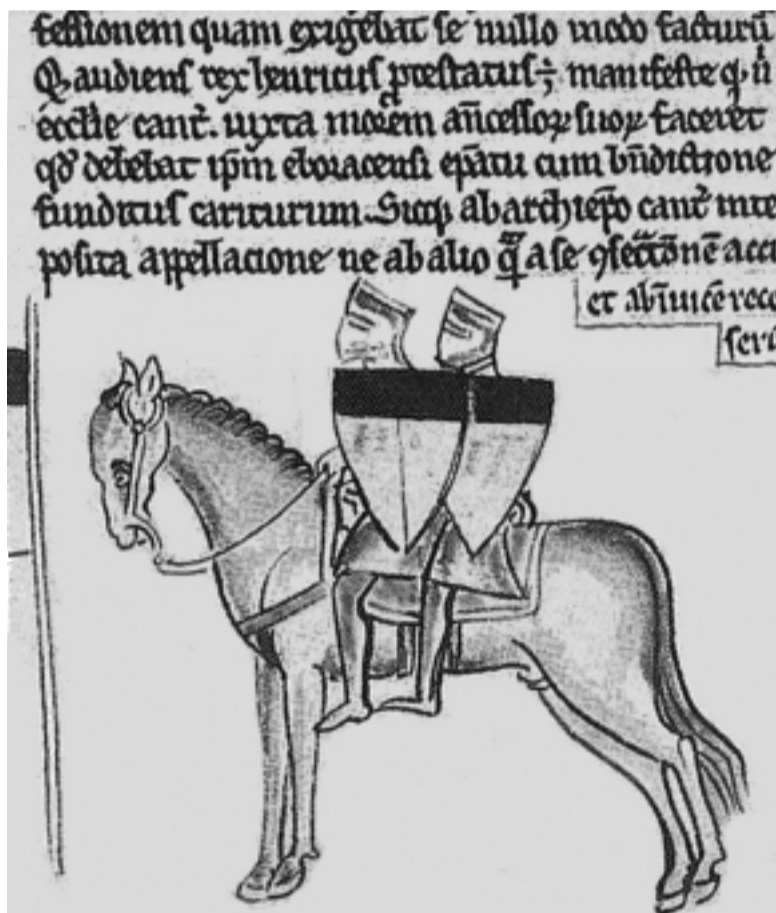 fessionem quam exigebat se nullo modo facturū
Q̄ audiens rex henricus p̄testatus ÷ manifeste q̄ n̄
ecclie cant̄. iuxta morem ancessoꝝ suoꝝ faceret
qd̄ debebat ip̄m eboracensi ep̄atu cum bn̄dictione
funditus cariturum. Sicq; ab archiep̄o cant̄ inte
posita appellacione ne ab alio q̄ a se ꝯsecc̄onē acci
et ab